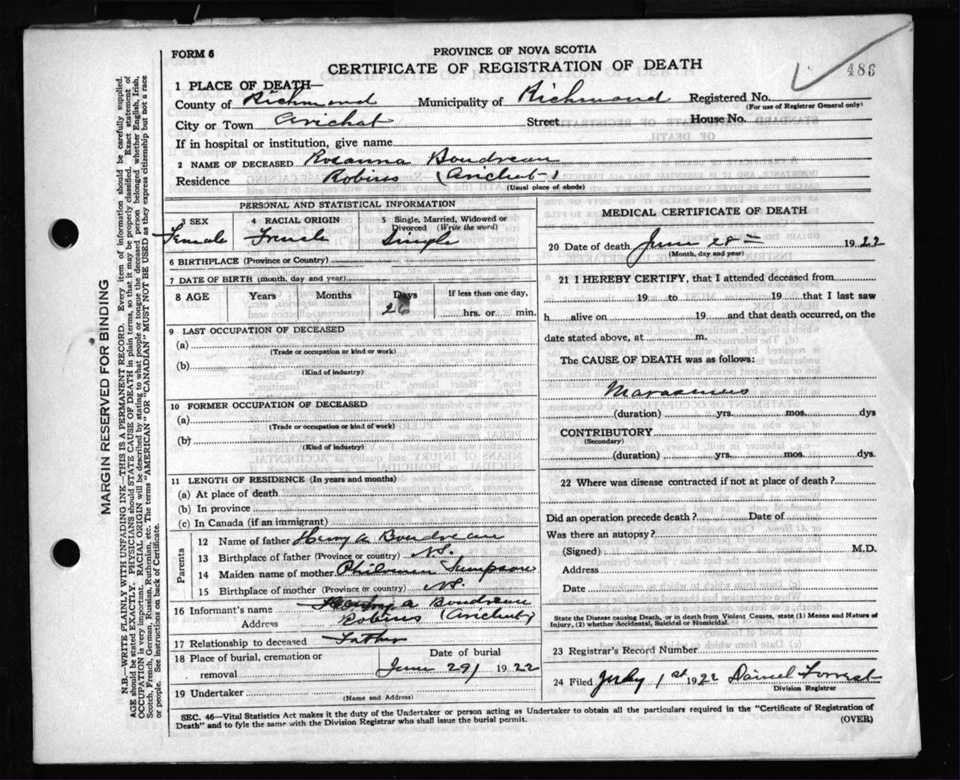 FORM 6
PROVINCE OF NOVA SCOTIA
CERTIFICATE OF REGISTRATION OF DEATH
486
1 PLACE OF DEATH—
County of Richmond Municipality of Richmond Registered No.
(For use of Registrar General only)
City or Town Arichat Street House No.
If in hospital or institution, give name
2 NAME OF DECEASED Rosanna Boudreau
Residence Robins (Arichat)
(Usual place of abode)
PERSONAL AND STATISTICAL INFORMATION
3 SEX 4 RACIAL ORIGIN 5 Single, Married, Widowed or Divorced (Write the word)
Female French Single
6 BIRTHPLACE (Province or Country)
7 DATE OF BIRTH (month, day and year)
8 AGE Years Months Days If less than one day,
hrs. or min.
9 LAST OCCUPATION OF DECEASED
(a)
(Trade or occupation or kind or work)
(b)
(Kind of industry)
10 FORMER OCCUPATION OF DECEASED
(a)
(Trade or occupation or kind of work)
(b)
(Kind of industry)
11 LENGTH OF RESIDENCE (In years and months)
(a) At place of death
(b) In province
(c) In Canada (if an immigrant)
Parents
12 Name of father Henry A Boudreau
13 Birthplace of father (Province or country) N.S.
14 Maiden name of mother Philomen Sampson
15 Birthplace of mother (Province or country) N.S.
16 Informant's name Henry A Boudreau
Address Robins (Arichat)
17 Relationship to deceased Father
18 Place of burial, cremation or removal Date of burial
June 29 1922
19 Undertaker
(Name and Address)
MEDICAL CERTIFICATE OF DEATH
20 Date of death June 28th 1922
(Month, day and year)
21 I HEREBY CERTIFY, that I attended deceased from
19 to 19 that I last saw
h alive on 19 and that death occurred, on the
date stated above, at m.
The CAUSE OF DEATH was as follows:
Marasmus
(duration) yrs. mos. dys
CONTRIBUTORY
(Secondary)
(duration) yrs. mos. dys.
22 Where was disease contracted if not at place of death?
Did an operation precede death? Date of
Was there an autopsy?
(Signed) M.D.
Address
Date
State the Disease causing Death, or in death from Violent Causes, state (1) Means and Nature of
Injury, (2) whether Accidental, Suicidal or Homicidal.
23 Registrar's Record Number
24 Filed July 1st 1922 Daniel Forrest
Division Registrar
SEC. 46—Vital Statistics Act makes it the duty of the Undertaker or person acting as Undertaker to obtain all the particulars required in the "Certificate of Registration of
Death" and to fyle the same with the Division Registrar who shall issue the burial permit.
(OVER)
MARGIN RESERVED FOR BINDING
N.B.—WRITE PLAINLY WITH UNFADING INK—THIS IS A PERMANENT RECORD. Every item of information should be carefully supplied.
AGE should be stated EXACTLY. PHYSICIANS should STATE CAUSE OF DEATH in plain terms, so that it may be properly classified. Exact statement of
OCCUPATION is very important. RACIAL ORIGIN will be described by stating to what people or tongue the deceased person belonged whether English, Irish,
Scotch, French, German, Russian, Ruthenian, etc. The terms "AMERICAN" OR "CANADIAN" MUST NOT BE USED as they express citizenship but not a race
or people. See instructions on back of Certificate.